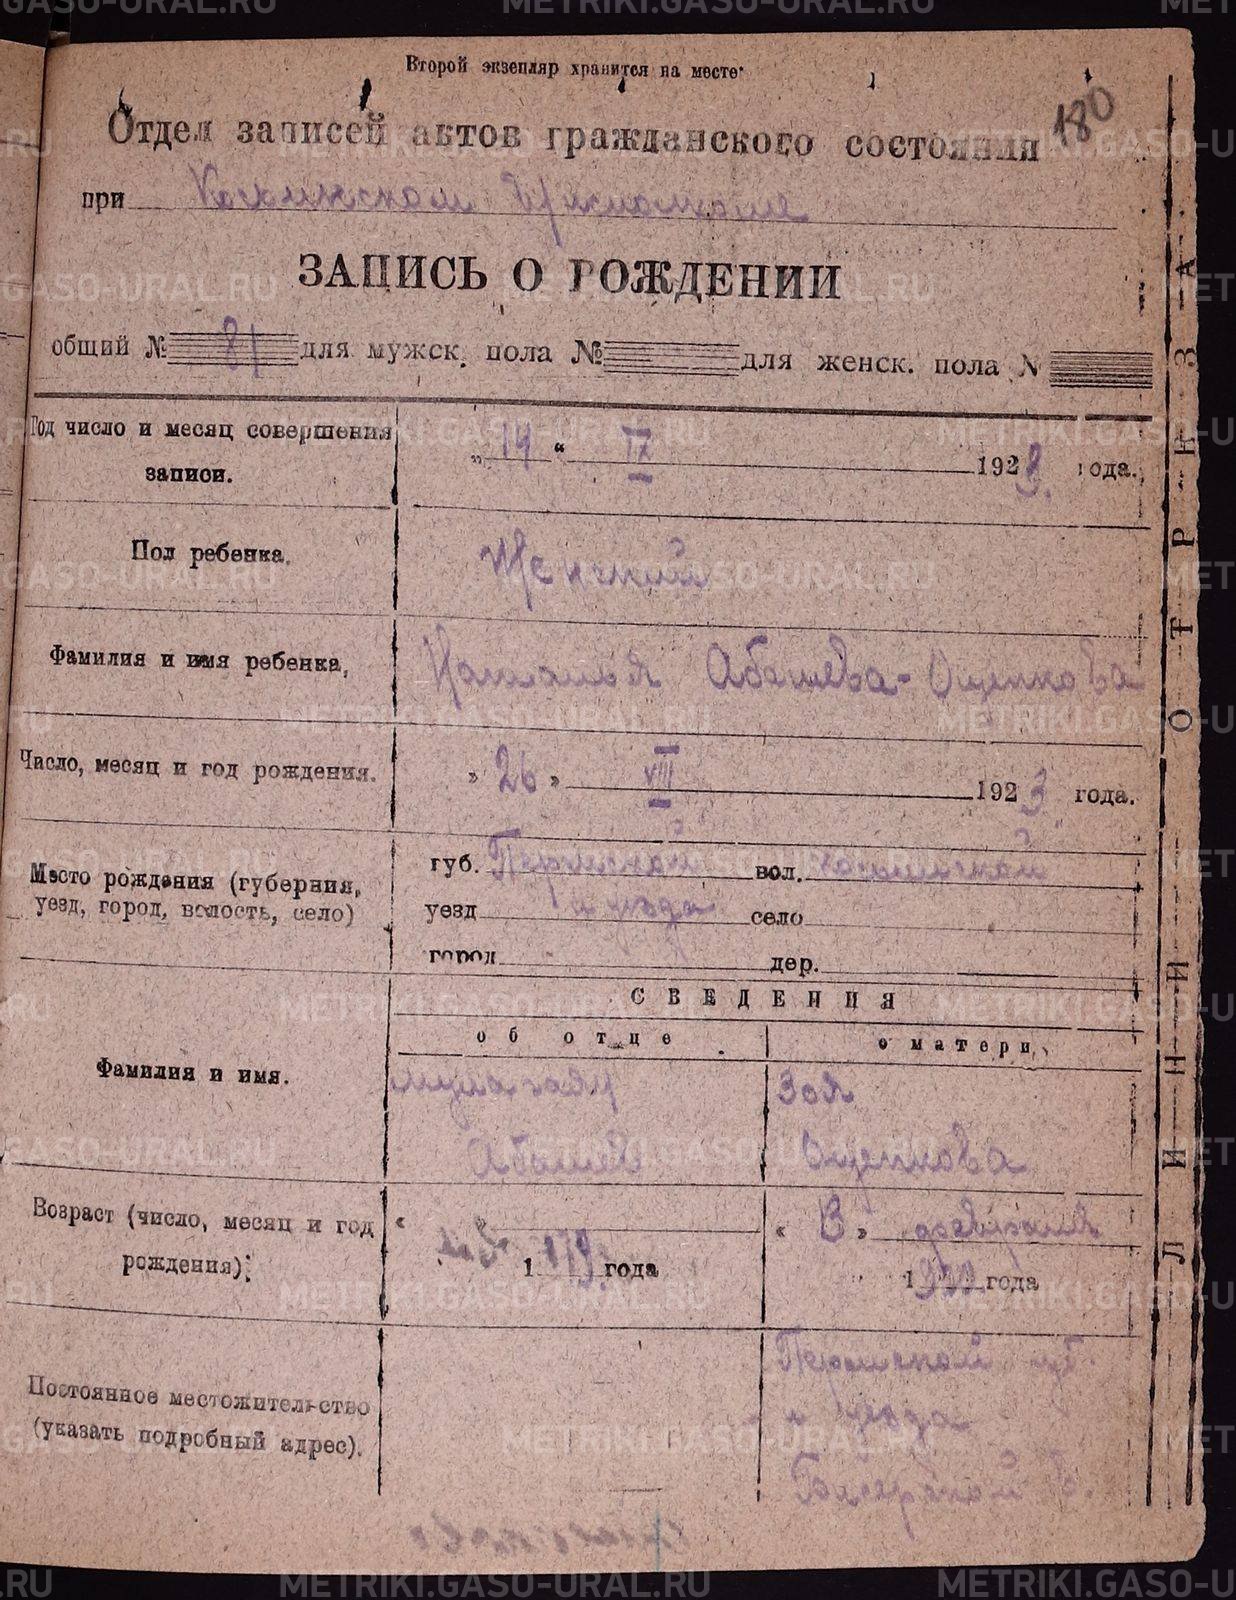 Второй экземпляр хранится на месте
180
Отдел записей актов гражданского состояния
при
ЗАПИСЬ О РОЖДЕНИИ
общий № 81 для мужск. пола № для женск. пола №
Год число и месяц совершения
записи.
„ 14 “ IX 1923 года.
Пол ребенка.
Женский
Фамилия и имя ребенка,
Наталья Абашева-Ощепкова
Число, месяц и год рождения.
» 26 » VIII 1923 года.
Место рождения (губерния,
уезд, город, волость, село)
губ. Пермской вол.
уезд и уезда село
город дер.
СВЕДЕНИЯ
об отце
о матери,
Фамилия и имя.
Абашев
Зоя
Ощепкова
Возраст (число, месяц и год
рождения):
« » 1 года
« 13 » февраля
1 года
Постоянное местожительство
(указать подробный адрес).
Пермской губ.
и уезда
ЛИНИЯ ОТРЕЗА
METRIKI.GASO-URAL.RU